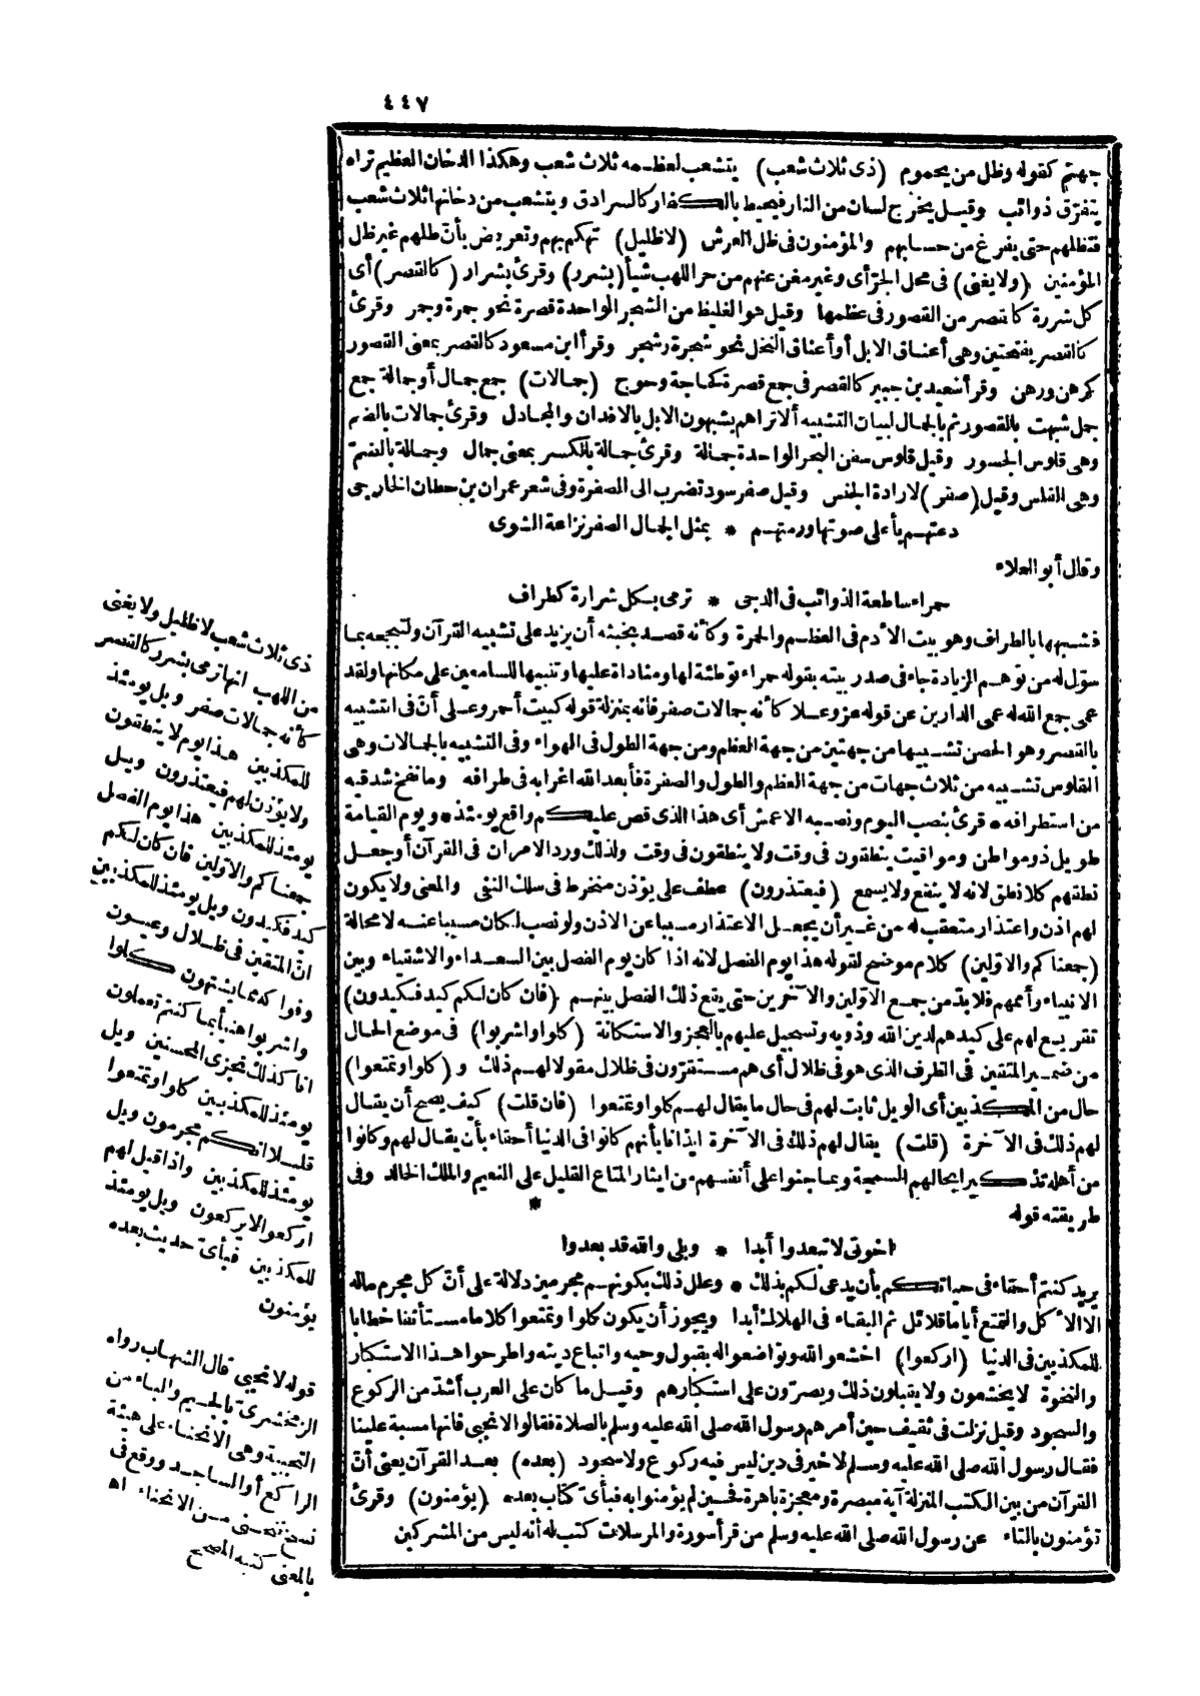 ٤٤٧
جهنم كقوله وظل من يحموم (ذى ثلاث شعب) يتشعب لعظمه ثلاث شعب وهكذا الدخان العظيم تراه
يتفرّق ذوائب وقيل يخرج لسان من النار فيحيط بالكفار كالسرادق ويتشعب من دخانها ثلاث شعب
فتظلهم حتى يفرغ من حسابهم والمؤمنون فى ظل العرش (لا ظليل) تهكم بهم وتعريض بأنّ ظلهم غير ظل
المؤمنين (ولا يغنى) فى محل الجرّ أى وغير مغن عنهم من حر اللهب شيأ (بشرر) وقرئ بشرار (كالقصر) أى
كل شررة كالقصر من القصور فى عظمها وقيل هو الغليظ من الشجر الواحدة قصرة نحو جمرة وجمر وقرئ
كالقصر بفتحتين وهى أعناق الابل أو أعناق النخل نحو شجرة وشجر وقرأ ابن مسعود كالقصر بمعنى القصور
كرهن ورهن وقرأ سعيد بن جبير كالقصر فى جمع قصرة كحاجة وحوج (جمالات) جمع جمال أو جمالة جمع
جمل شبهت بالقصور ثم بالجمال لبيان التشبيه ألا تراهم يشبهون الابل بالافدان والمجادل وقرئ جمالات بالضم
وهى قلوس الجسور وقيل قلوس سفن البحر الواحدة جمالة وقرئ جمالة بالكسر بمعنى جمال وجمالة بالضمّ
وهى القلس وقيل (صفر) لارادة الجنس وقيل صفر سود تضرب الى الصفرة وفى شعر عمران بن حطان الخارجى
دعتهم بأعلى صوتها ورمتهم * بمثل الجمال الصفر نزاعة الشوى
وقال أبو العلاء
حمراء ساطعة الذوائب فى الدجى * ترمى بكل شرارة كطراف
فشبهها بالطراف وهو بيت الأدم فى العظم والحمرة وكأنه قصد بخبثه أن يزيد على تشبيه القرآن ولتبجحه بما
سوّل له من توهم الزيادة جاء فى صدر بيته بقوله حمراء توطئة لها ومناداة عليها وتنبيها للسامعين على مكانها ولقد
عمى جمع الله له عمى الدارين عن قوله عز وعلا كأنه جمالات صفر فانه بمنزلة قوله كبيت أحمر وعلى أنّ فى التشبيه
بالقصر وهو الحصن تشبيها من جهتين من جهة العظم ومن جهة الطول فى الهواء وفى التشبيه بالجمالات وهى
القلوس تشبيه من ثلاث جهات من جهة العظم والطول والصفرة فأبعد الله اغرابه فى طرافه وما نفخ شدقيه
من استطرافه * قرئ بنصب اليوم ونصبه الاعمش أى هذا الذى قص عليكم واقع يومئذ * ويوم القيامة
طويل ذو مواطن ومواقيت ينطقون فى وقت ولا ينطقون فى وقت ولذلك ورد الامران فى القرآن أو جعل
نطقهم كلا نطق لانه لا ينفع ولا يسمع (فيعتذرون) عطف على يؤذن منخرط فى سلك النفى والمعنى ولا يكون
لهم اذن واعتذار متعقب له من غير أن يجعل الاعتذار مسببا عن الاذن ولو نصب لكان مسببا عنه لا محالة
(جمعناكم والاوّلين) كلام موضح لقوله هذا يوم الفصل لانه اذا كان يوم الفصل بين السعداء والاشقياء وبين
الانبياء وأممهم فلا بدّ من جمع الاوّلين والآخرين حتى يقع ذلك الفصل بينهم (فان كان لكم كيد فكيدون)
تقريع لهم على كيدهم لدين الله وذويه وتسجيل عليهم بالعجز والاستكانة (كلوا واشربوا) فى موضع الحال
من ضمير المتقين فى الظرف الذى هو فى ظلال أى هم مستقرّون فى ظلال مقولا لهم ذلك و (كلوا وتمتعوا)
حال من المكذبين أى الويل ثابت لهم فى حال ما يقال لهم كلوا وتمتعوا (فان قلت) كيف يصح أن يقال
لهم ذلك فى الآخرة (قلت) يقال لهم ذلك فى الآخرة ايذانا بأنهم كانوا فى الدنيا أحقاء بأن يقال لهم وكانوا
من أهله تذكيرا بحالهم السمجة وبما جنوا على أنفسهم من ايثار المتاع القليل على النعيم والملك الخالد وفى
طريقته قوله *
اخوتى لا تبعدوا أبدا * وبلى والله قد بعدوا
يريد كنتم أحقاء فى حياتكم بأن يدعى لكم بذلك * وعلل ذلك بكونهم مجرمين دلالة على أنّ كل مجرم ماله
الا الأكل والتمتع أياما قلائل ثم البقاء فى الهلاك أبدا ويجوز أن يكون كلوا وتمتعوا كلاما مستأنفا خطابا
للمكذبين فى الدنيا (اركعوا) اخشعوا لله وتواضعوا له بقبول وحيه واتباع دينه واطرحوا هذا الاستكبار
والنخوة لا يخشعون ولا يقبلون ذلك ويصرّون على استكبارهم وقيل ما كان على العرب أشدّ من الركوع
والسجود وقيل نزلت فى ثقيف حين أمرهم رسول الله صلى الله عليه وسلم بالصلاة فقالوا لا نجبى فانها مسبة علينا
فقال رسول الله صلى الله عليه وسلم لا خير فى دين ليس فيه ركوع ولا سجود (بعده) بعد القرآن يعنى أنّ
القرآن من بين الكتب المنزلة آية مبصرة ومعجزة باهرة فحين لم يؤمنوا به فبأىّ كتاب بعده (يؤمنون) وقرئ
تؤمنون بالتاء عن رسول الله صلى الله عليه وسلم من قرأ سورة والمرسلات كتب له أنه ليس من المشركين
ذى ثلاث شعب لا ظليل ولا يغنى
من اللهب انها ترمى بشرر كالقصر
كأنه جمالات صفر ويل يومئذ
للمكذبين هذا يوم لا ينطقون
ولا يؤذن لهم فيعتذرون ويل
يومئذ للمكذبين هذا يوم الفصل
جمعناكم والاوّلين فان كان لكم
كيد فكيدون ويل يومئذ للمكذبين
انّ المتقين فى ظلال وعيون
وفواكه مما يشتهون كلوا
واشربوا هنيأ بما كنتم تعملون
انا كذلك نجزى المحسنين ويل
يومئذ للمكذبين كلوا وتمتعوا
قليلا انكم مجرمون ويل
يومئذ للمكذبين واذا قيل لهم
اركعوا لا يركعون ويل يومئذ
للمكذبين فبأىّ حديث بعده
يؤمنون
قوله لا نجبى قال الشهاب رواه
الزمخشرىّ بالجيم والباء من
التجبية وهى الانحناء على هيئة
الراكع أو الساجد ووقع فى
نسخ من الانحناء اه
بالمعنى كتبه المصحح